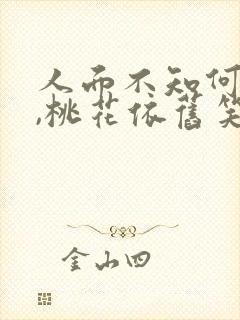 人而不知何
,桃花依舊笑
金山四